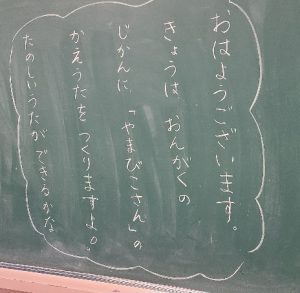 おはようございます。
きょうは おんがくの
じかんに、「やまびこさん」の
かえうたを つくりますよ。
たのしいうたが できるかな